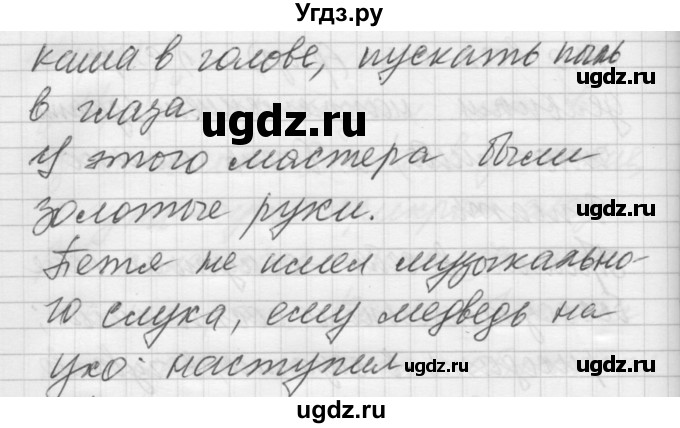 Угдз.ру
каша в голове, пускать пыль
в глаза.
У этого мастера были
золотые руки.
Петя не имел музыкально-
го слуха, ему медведь на
ухо наступил
ugdz.ru
ugdz.ru
ugdz.ru
ugdz.ru
ugdz.ru
ugdz.ru
ugdz.ru